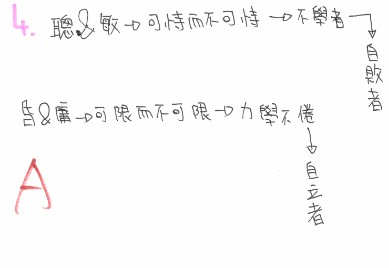 4. 聰&敏→可恃而不可恃→不學者
↓
自敗者
昏&庸→可限而不可限→力學不倦
↓
自立者
A